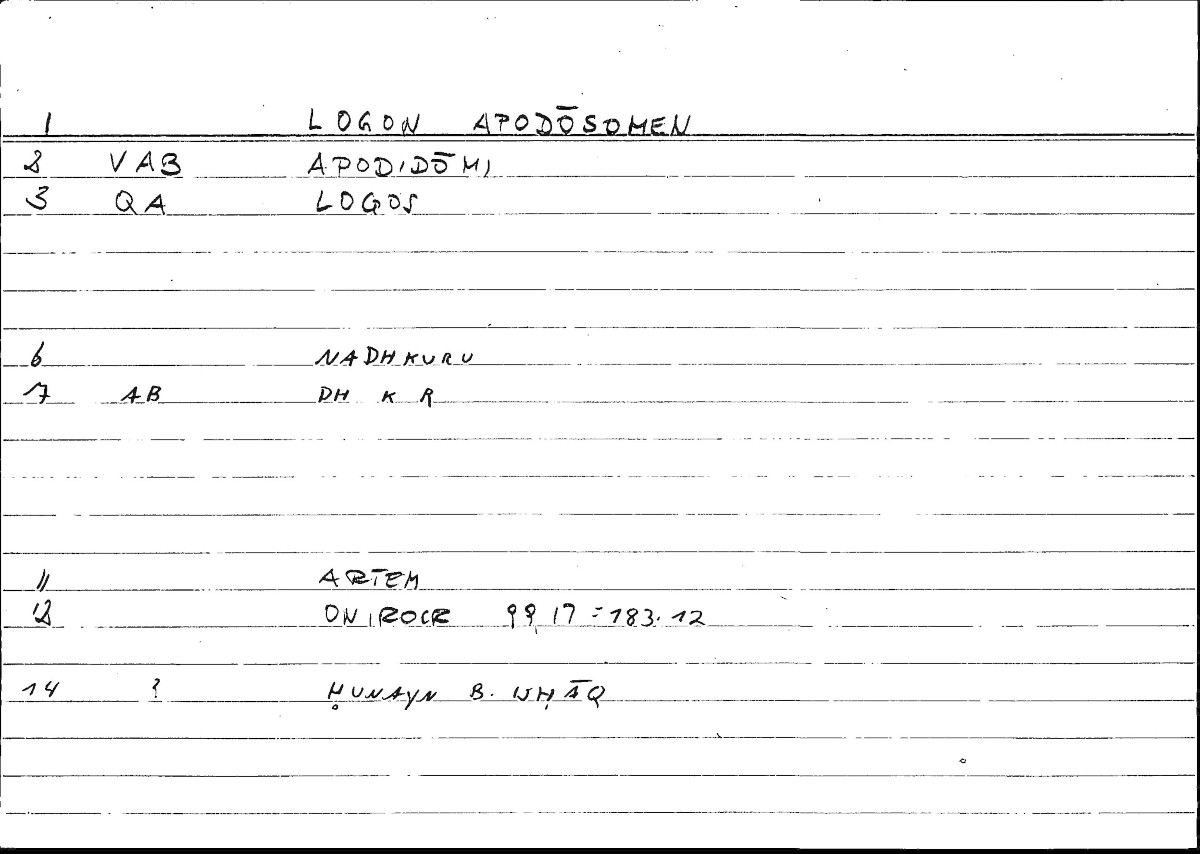 1 LOGON APODŌSOMEN
2 VAB APODIDŌMI
3 QA LOGOS
6 NADHKURU
7 AB DH K R
11 ARTEM
12 ONIROCR 99,17 = 183.12
14 ? ḤUNAYN B. ISḤĀQ